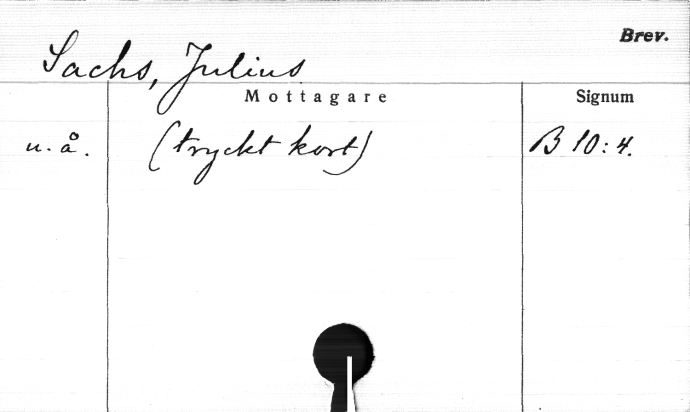 Brev.
Sachs, Julius
Mottagare Signum
u. å. (tryckt kort) B 10:4.